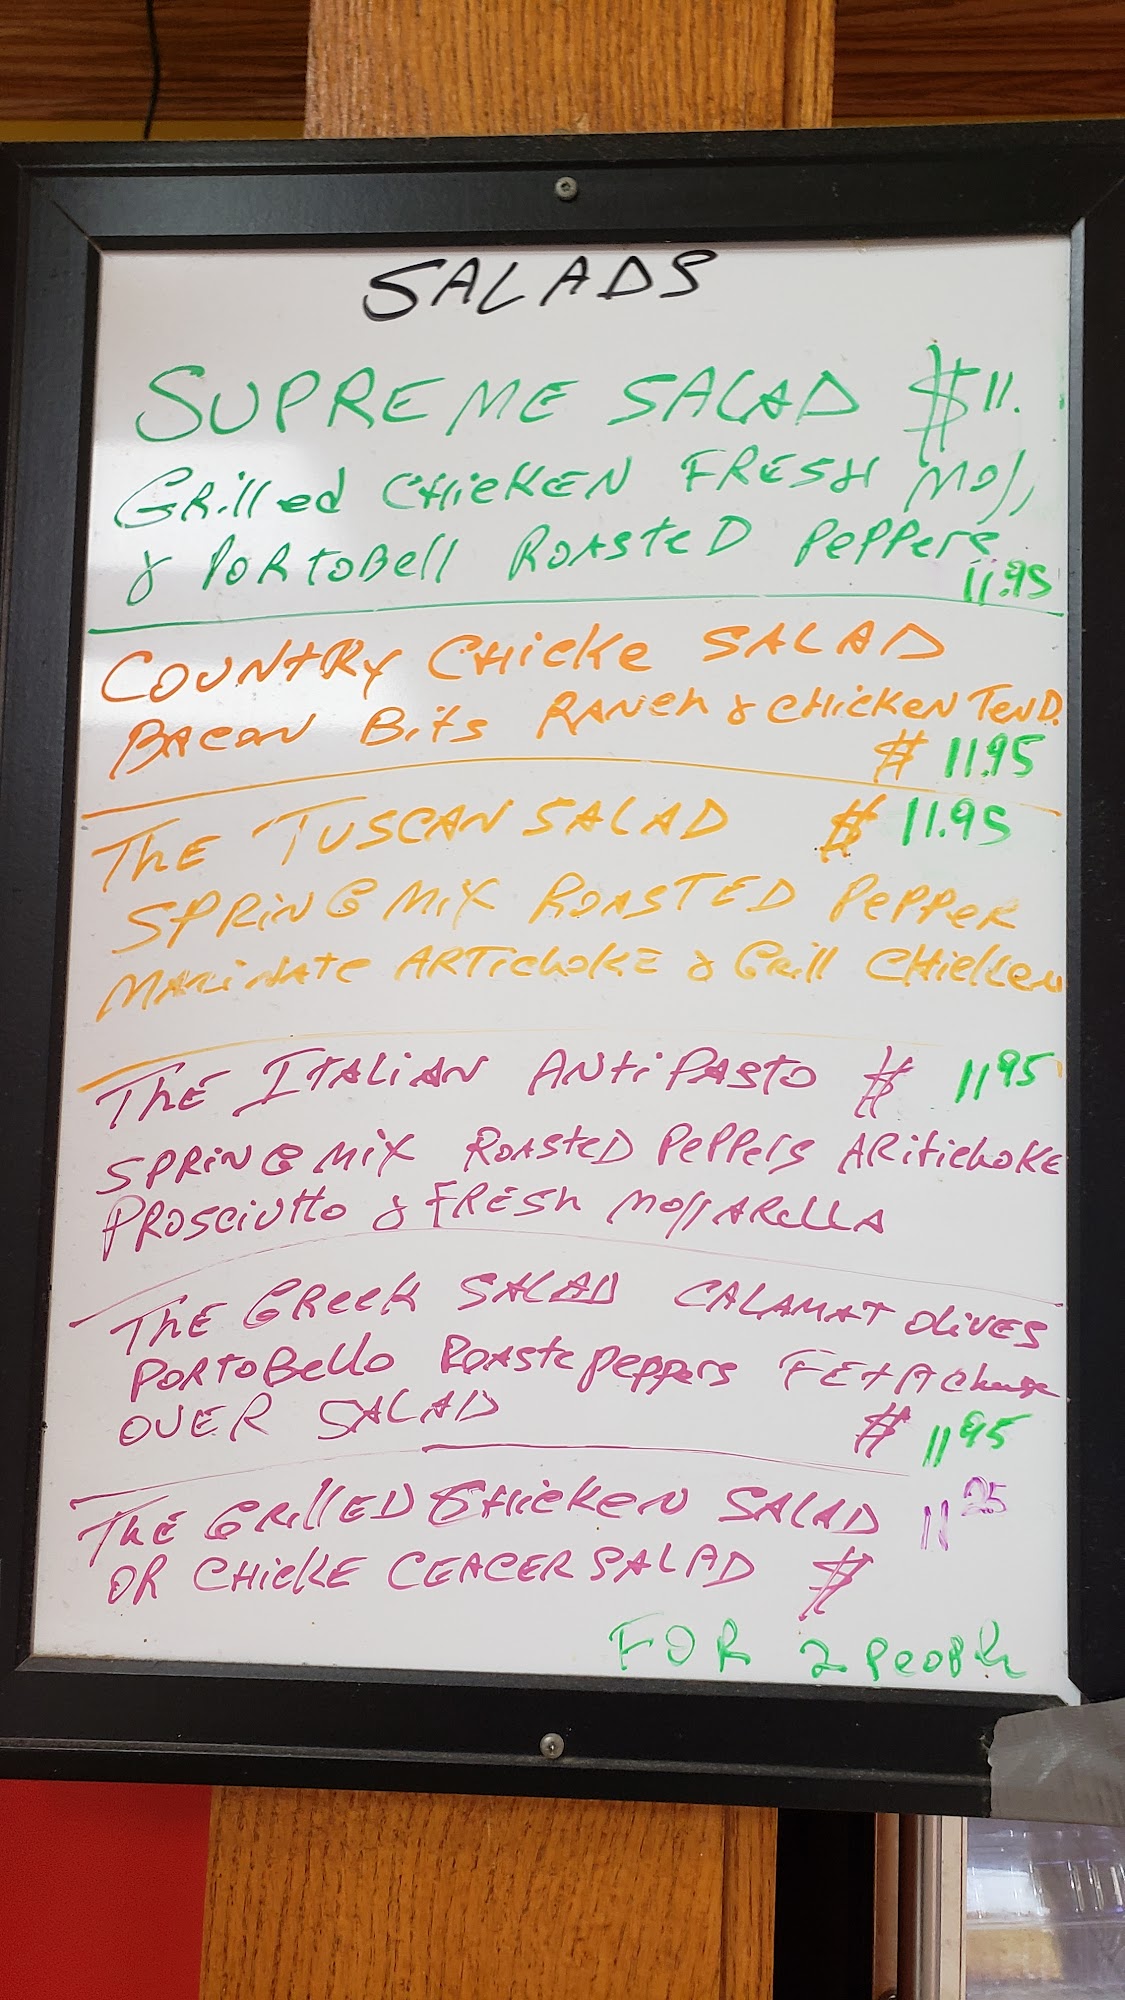 SALADS
SUPREME SALAD $11.
GRilled CHicKEN FRESH MOZZ,
& PORTOBell ROASTED PePPers
11.95
COUNTRY CHicKe SALAD
BACON Bits RANCH & CHicKEN TenD.
$ 11.95
THE TUSCAN SALAD $ 11.95
SPRiNG MiX ROASTED PePPER
MARiNATE ARTichOKE & GRill CHicken
THE ITALiAN ANTiPASTO $ 11 95
SPRiNG MiX ROASTED PePPers ARitichOKE
PROSCiUtto & FRESH MOZZARELLA
THE GReeK SALAD CALAMAT OLiVES
PORTOBello ROASTe pePPers FETA Cheese
OVER SALAD $ 11 95
THE GRillED CHicKeN SALAD 11 25
OR CHicKE CEACER SALAD $
FOR 2 PEOPle